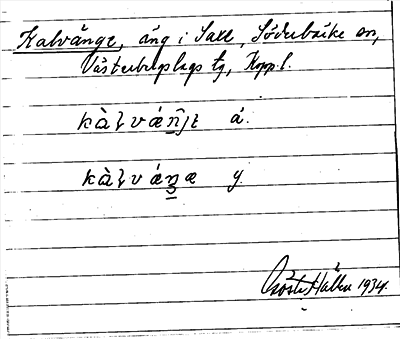 Kalvänge, äng i Saxe, Söderbärke sn,
Västerbergslags tg, Kppl.
kàlván̂jε á.
kàlváŋæ y.
Gösta Hallén 1934.